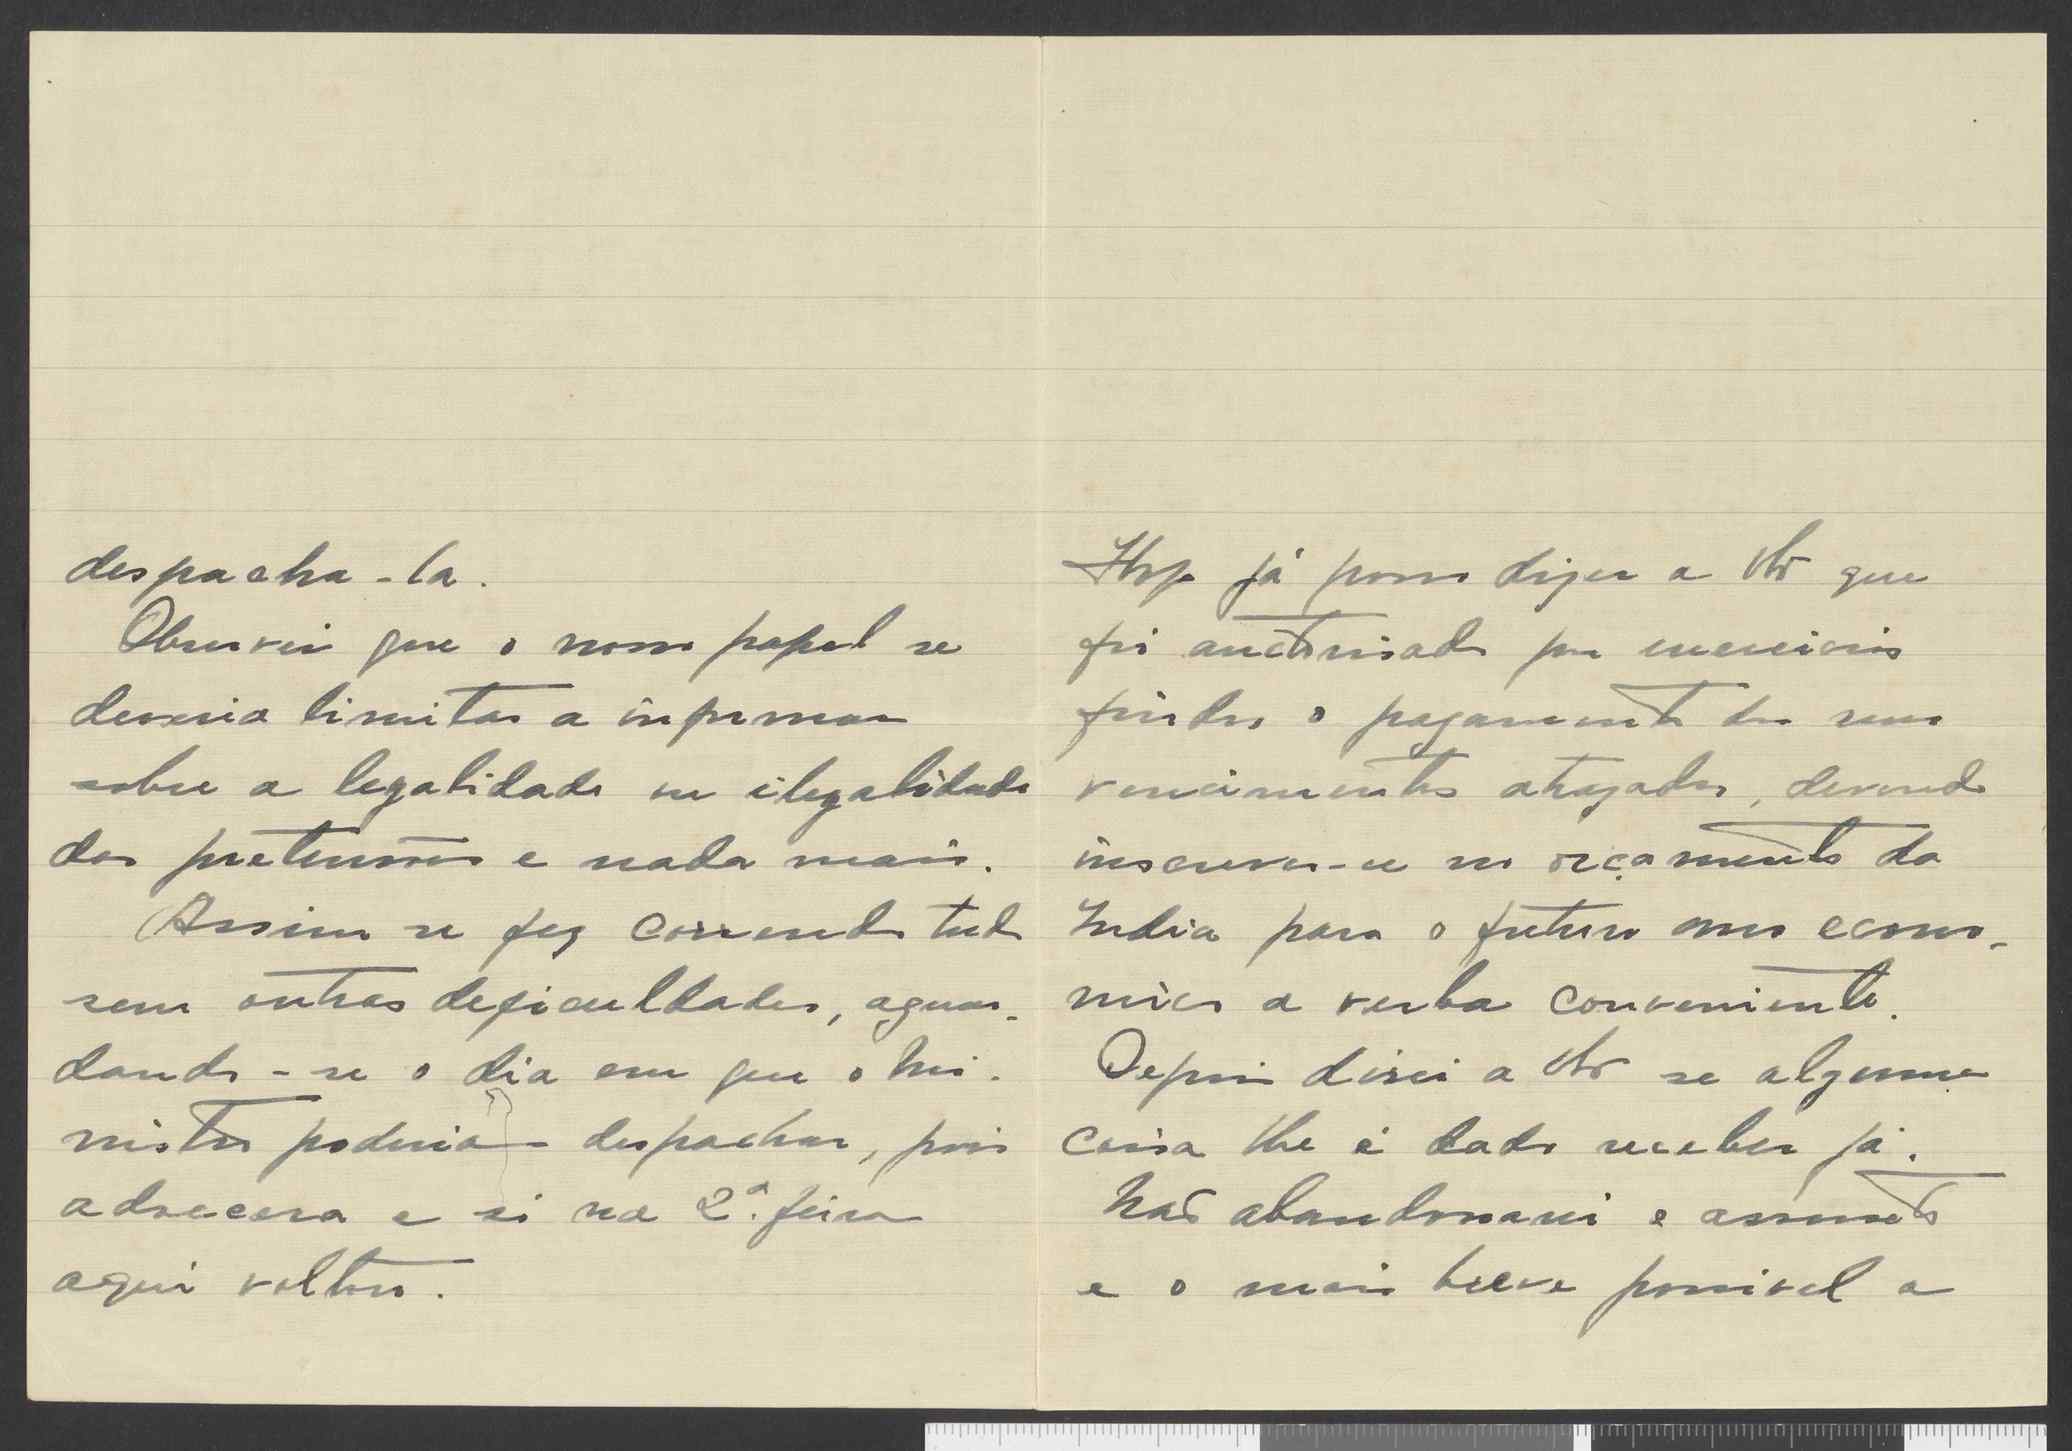 despacha-la.
Observei que o nosso papel se
deveria limitar a informar
sobre a legalidade ou ilegalidade
das pretensões e nada mais.
Assim se fez correndo tudo
sem outras deficuldades, aguar-
dando-se o dia em que o Mi-
nistro poderia despachar, pois
adoecera e si na 2.ª feira
aqui voltou.
Hoje já posso dizer a V.
que
foi auctorisado por exercicios
findos o pagamento dos seus
vencimentos atrazados, devendo
inscrever-se no orçamento da
India para o futuro ano econo-
mico a verba conveniente.
Depois direi a V. se alguma
coisa lhe é dado receber já.
Não abandonarei o assunto
e o mais breve possivel a